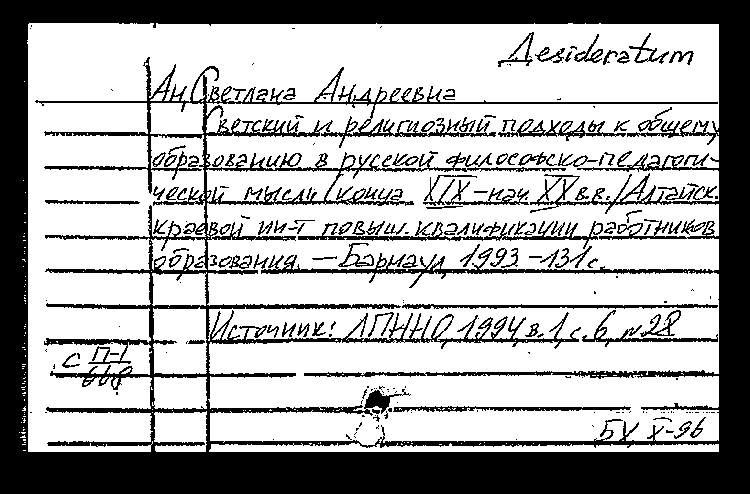 Desideratum
Ан, Светлана Андреевна
Светский и религиозный подходы к общему
образованию в русской философско-педагоги-
ческой мысли конца XIX-нач. XX в.в./Алтайск.
краевой ин-т повыш. квалификации работников
образования. — Барнаул, 1993 - 131 с.
Источник: ЛПННО, 1994, в. 1, с. 6, n. 28
С П-1
668
БХ, X-96